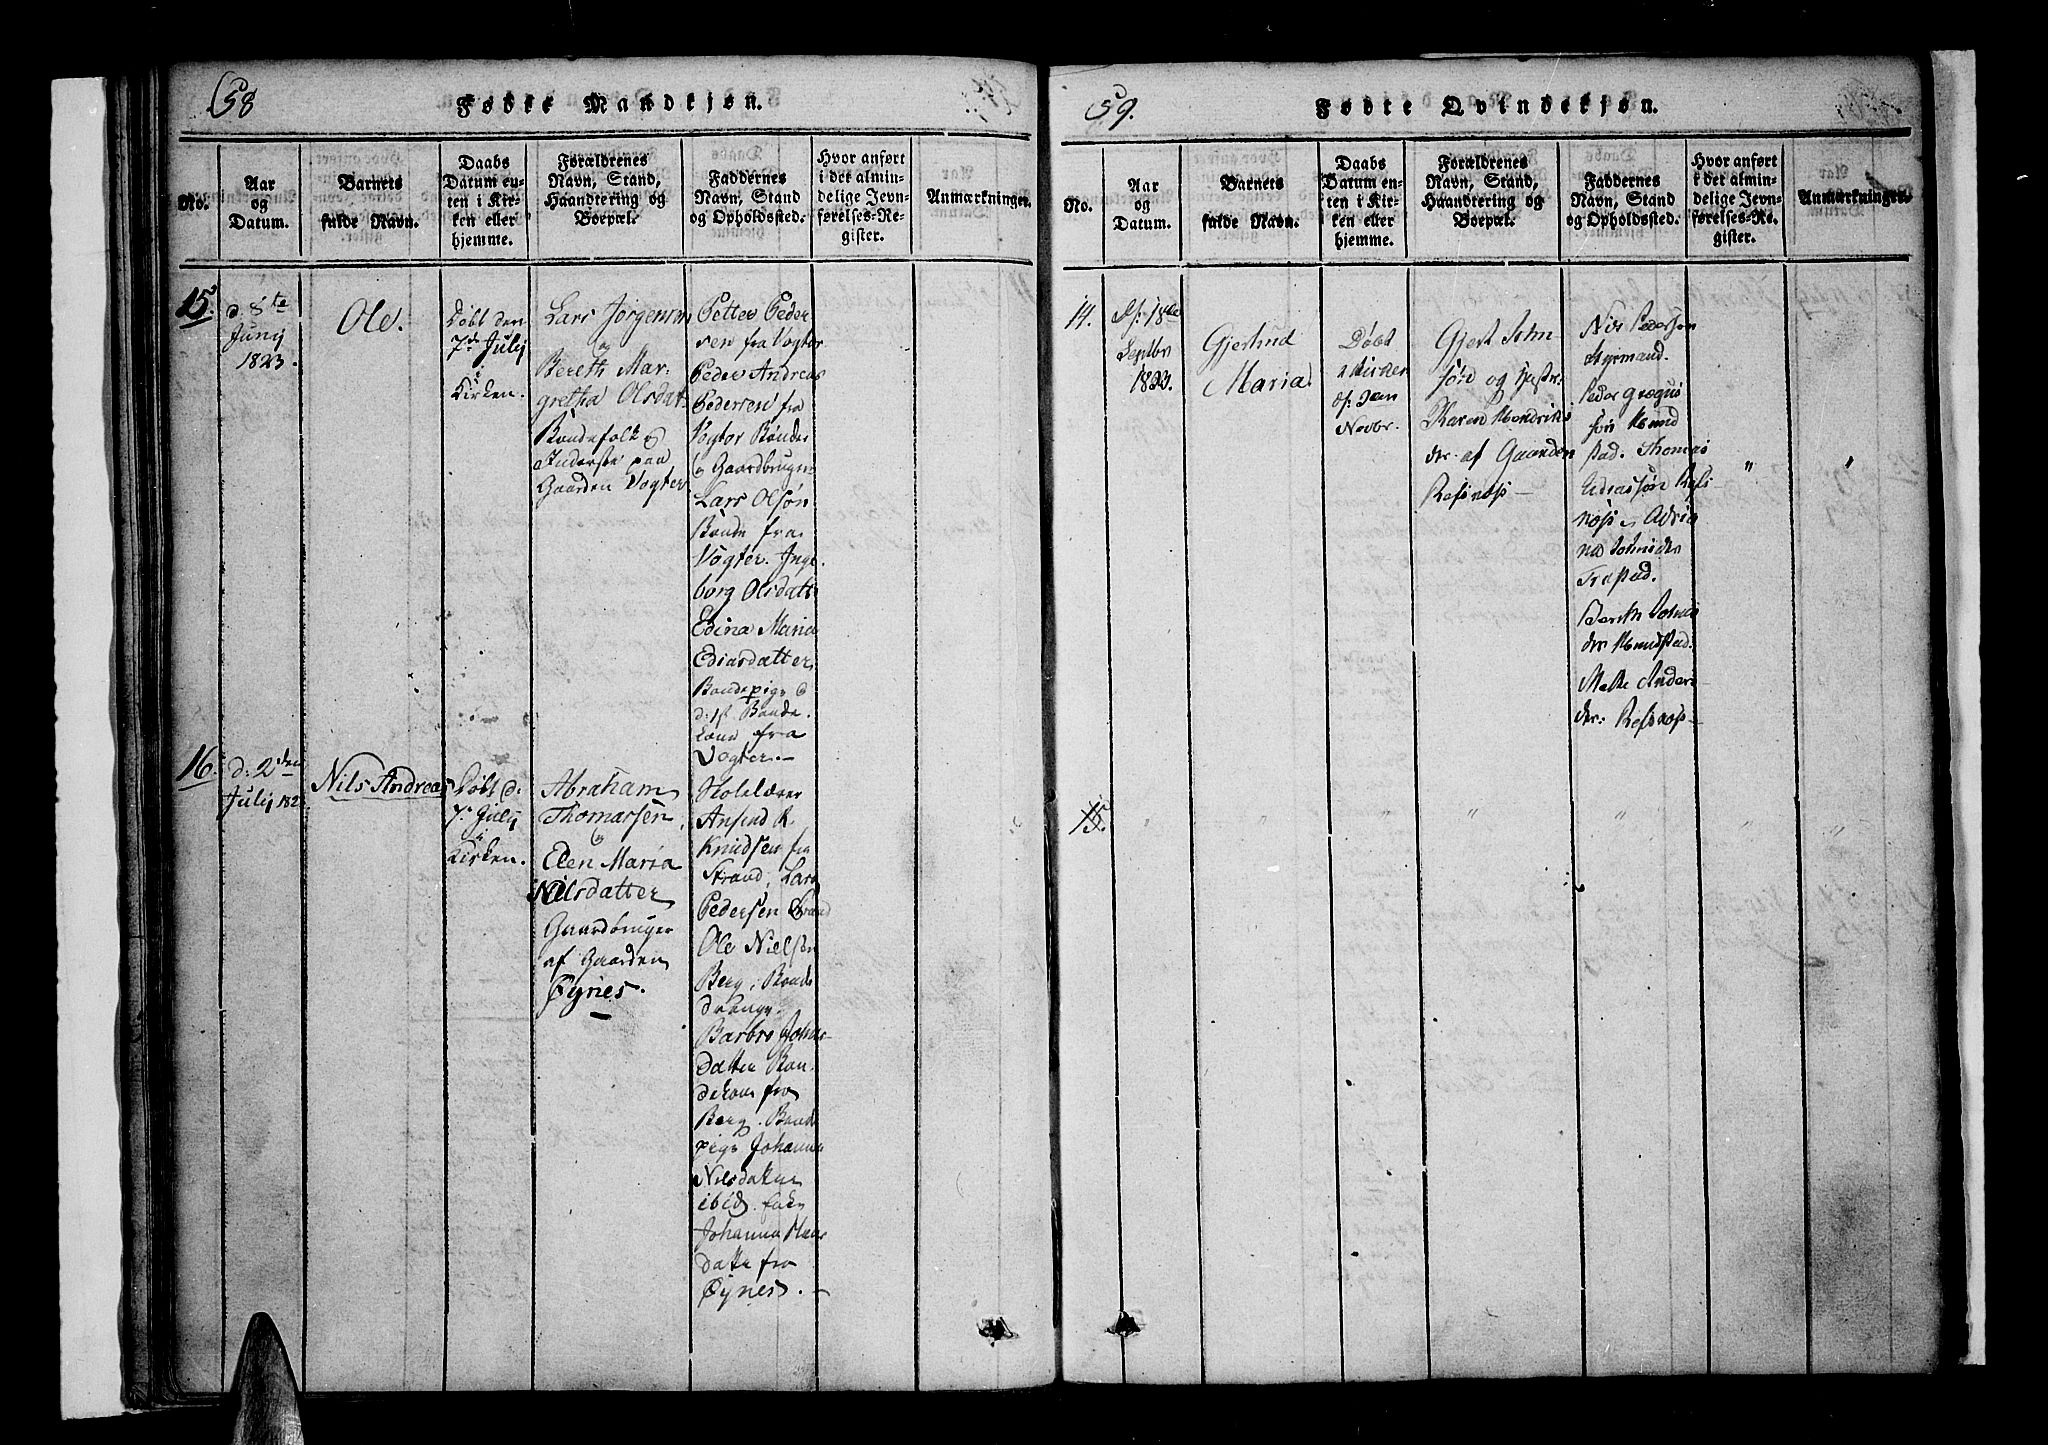 58
Fødte Mandkjøn.
No.
Aar
og
Datum.
Barnets
fulde Navn.
Daabs
Datum en-
ten i Kir-
ken eller
hjemme.
Forældrenes
Navn, Stand,
Haandtering og
Boepæl.
Faddernes
Navn, Stand
og Opholdssted.
Hvor anført
i det almin-
delige Jevn-
førelses-Re-
gister.
Anmærkninger.
15.
d. 8te
Junij
1823.
Ole.
Døbt den
7de Julij
i
Kirken.
Lars Jørgensen
og
Bereth Mar-
gretha Olsdat.
Bondefolk og
Inderste paa
Gaarden Vogter
Petter Peder
sen fra Vogter
Peder Andreas
Pedersen fra
Vogter Bønder
og Gaardbruger
Lars Olsøn
Bonde fra
Vogter. Inge
borg Olsdatt
Edina Maria
Ediasdatter
Bondepige
d: 1st Bonde
kone fra
Vogter.
16.
d: 2den
Julij 182
Nils Andreas
Døbt d.
7. Julij
i
Kirken.
Abraham
Thomassen
og
Elen Maria
Nilsdatter
af Gaarden
Øynes.
Skolelærer
Knudsen fra
Strand, Lars
Pedersen Strand
Ole Nielsen
Berg, Bonde
drenge
Barbro Johns
datter Bon
dekone fra
Berg. Bond
pige Johanna
Nilsdatter
ibid.
Johanna
datte fra
Øynes.
59.
Fødte Qvindekjøn.
No.
Aar
og
Datum.
Barnets
fulde Navn.
Daabs
Datum en-
ten i Kir-
ken eller
hjemme.
Forældrenes
Navn, Stand,
Haandtering og
Boepæl.
Faddernes
Navn, Stand
og Opholdssted.
Hvor anført
i det almin-
delige Jevn-
førelses-Re-
gister.
Anmærkninger.
14.
d: 18de
Septbr
1823.
Gjertrud
Maria
Døbt
i Kirken
Novbr.
Gjert John
søn og Hustr:
Karen Hendriks
dr. af Gaarden
Refsnæs
Nils Pedersøn
Styrmand.
Peder Gregus
søn
stad. Thomas
næs og Adria
na Johnsdr
Trastad.
Berith Johns
dr.
Mette Anders
dr: Refsnæs
"
"
15.
"
"
"
"
"
"
"